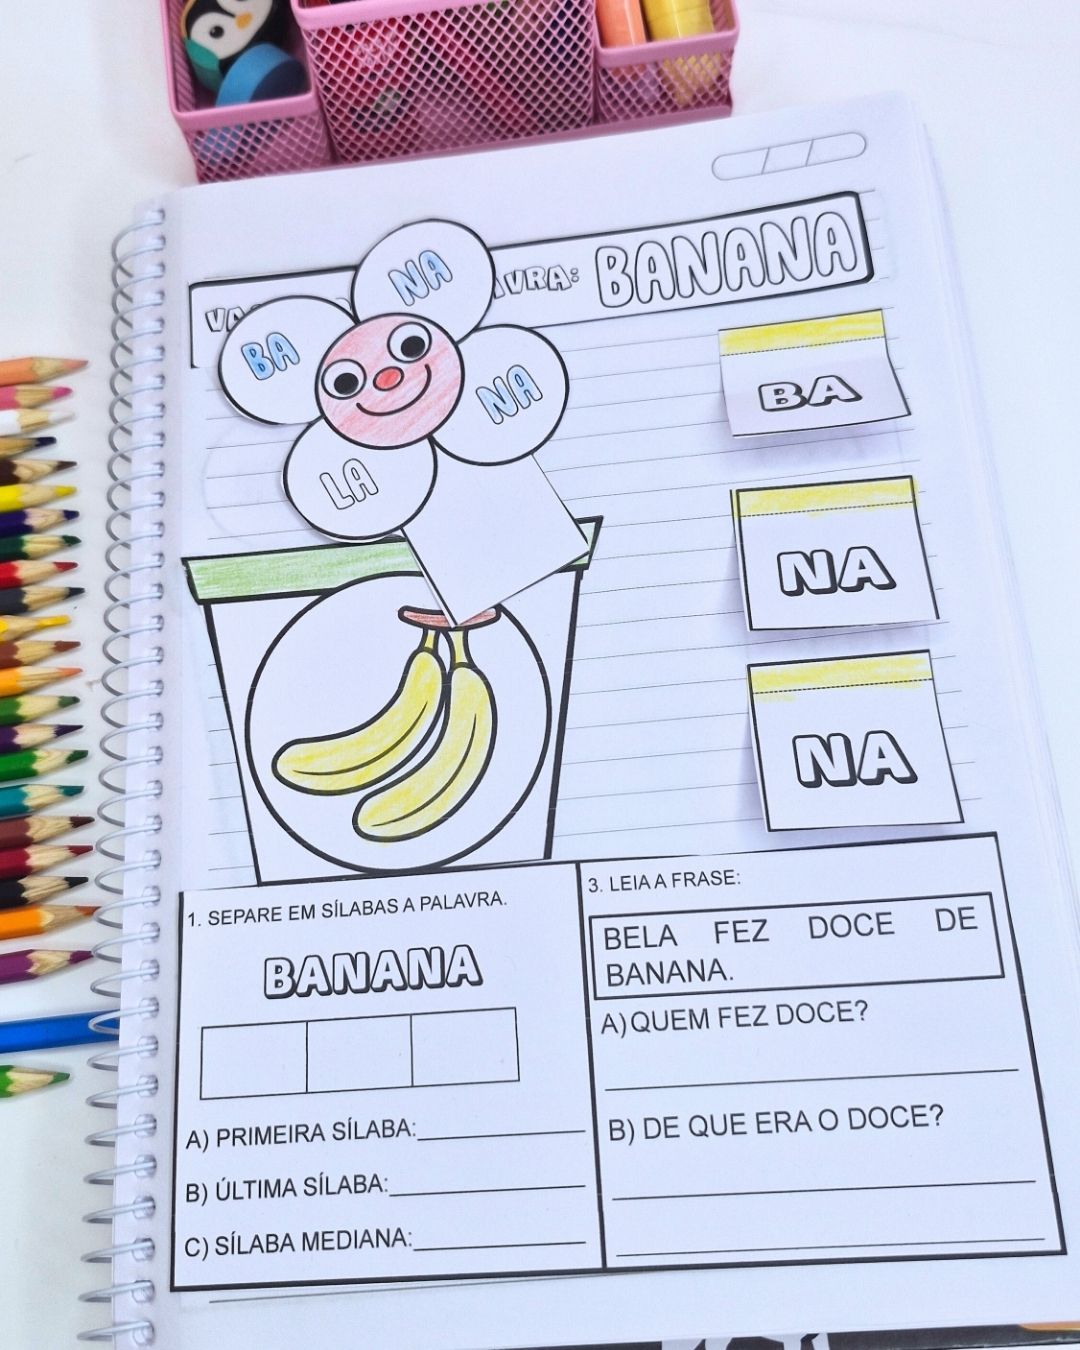 VRA: BANANA
NA
BA
NA
LA
BA
NA
NA
1. SEPARE EM SÍLABAS A PALAVRA.
BANANA
A) PRIMEIRA SÍLABA:
B) ÚLTIMA SÍLABA:
C) SÍLABA MEDIANA:
3. LEIA A FRASE:
BELA FEZ DOCE DE
BANANA.
A) QUEM FEZ DOCE?
B) DE QUE ERA O DOCE?